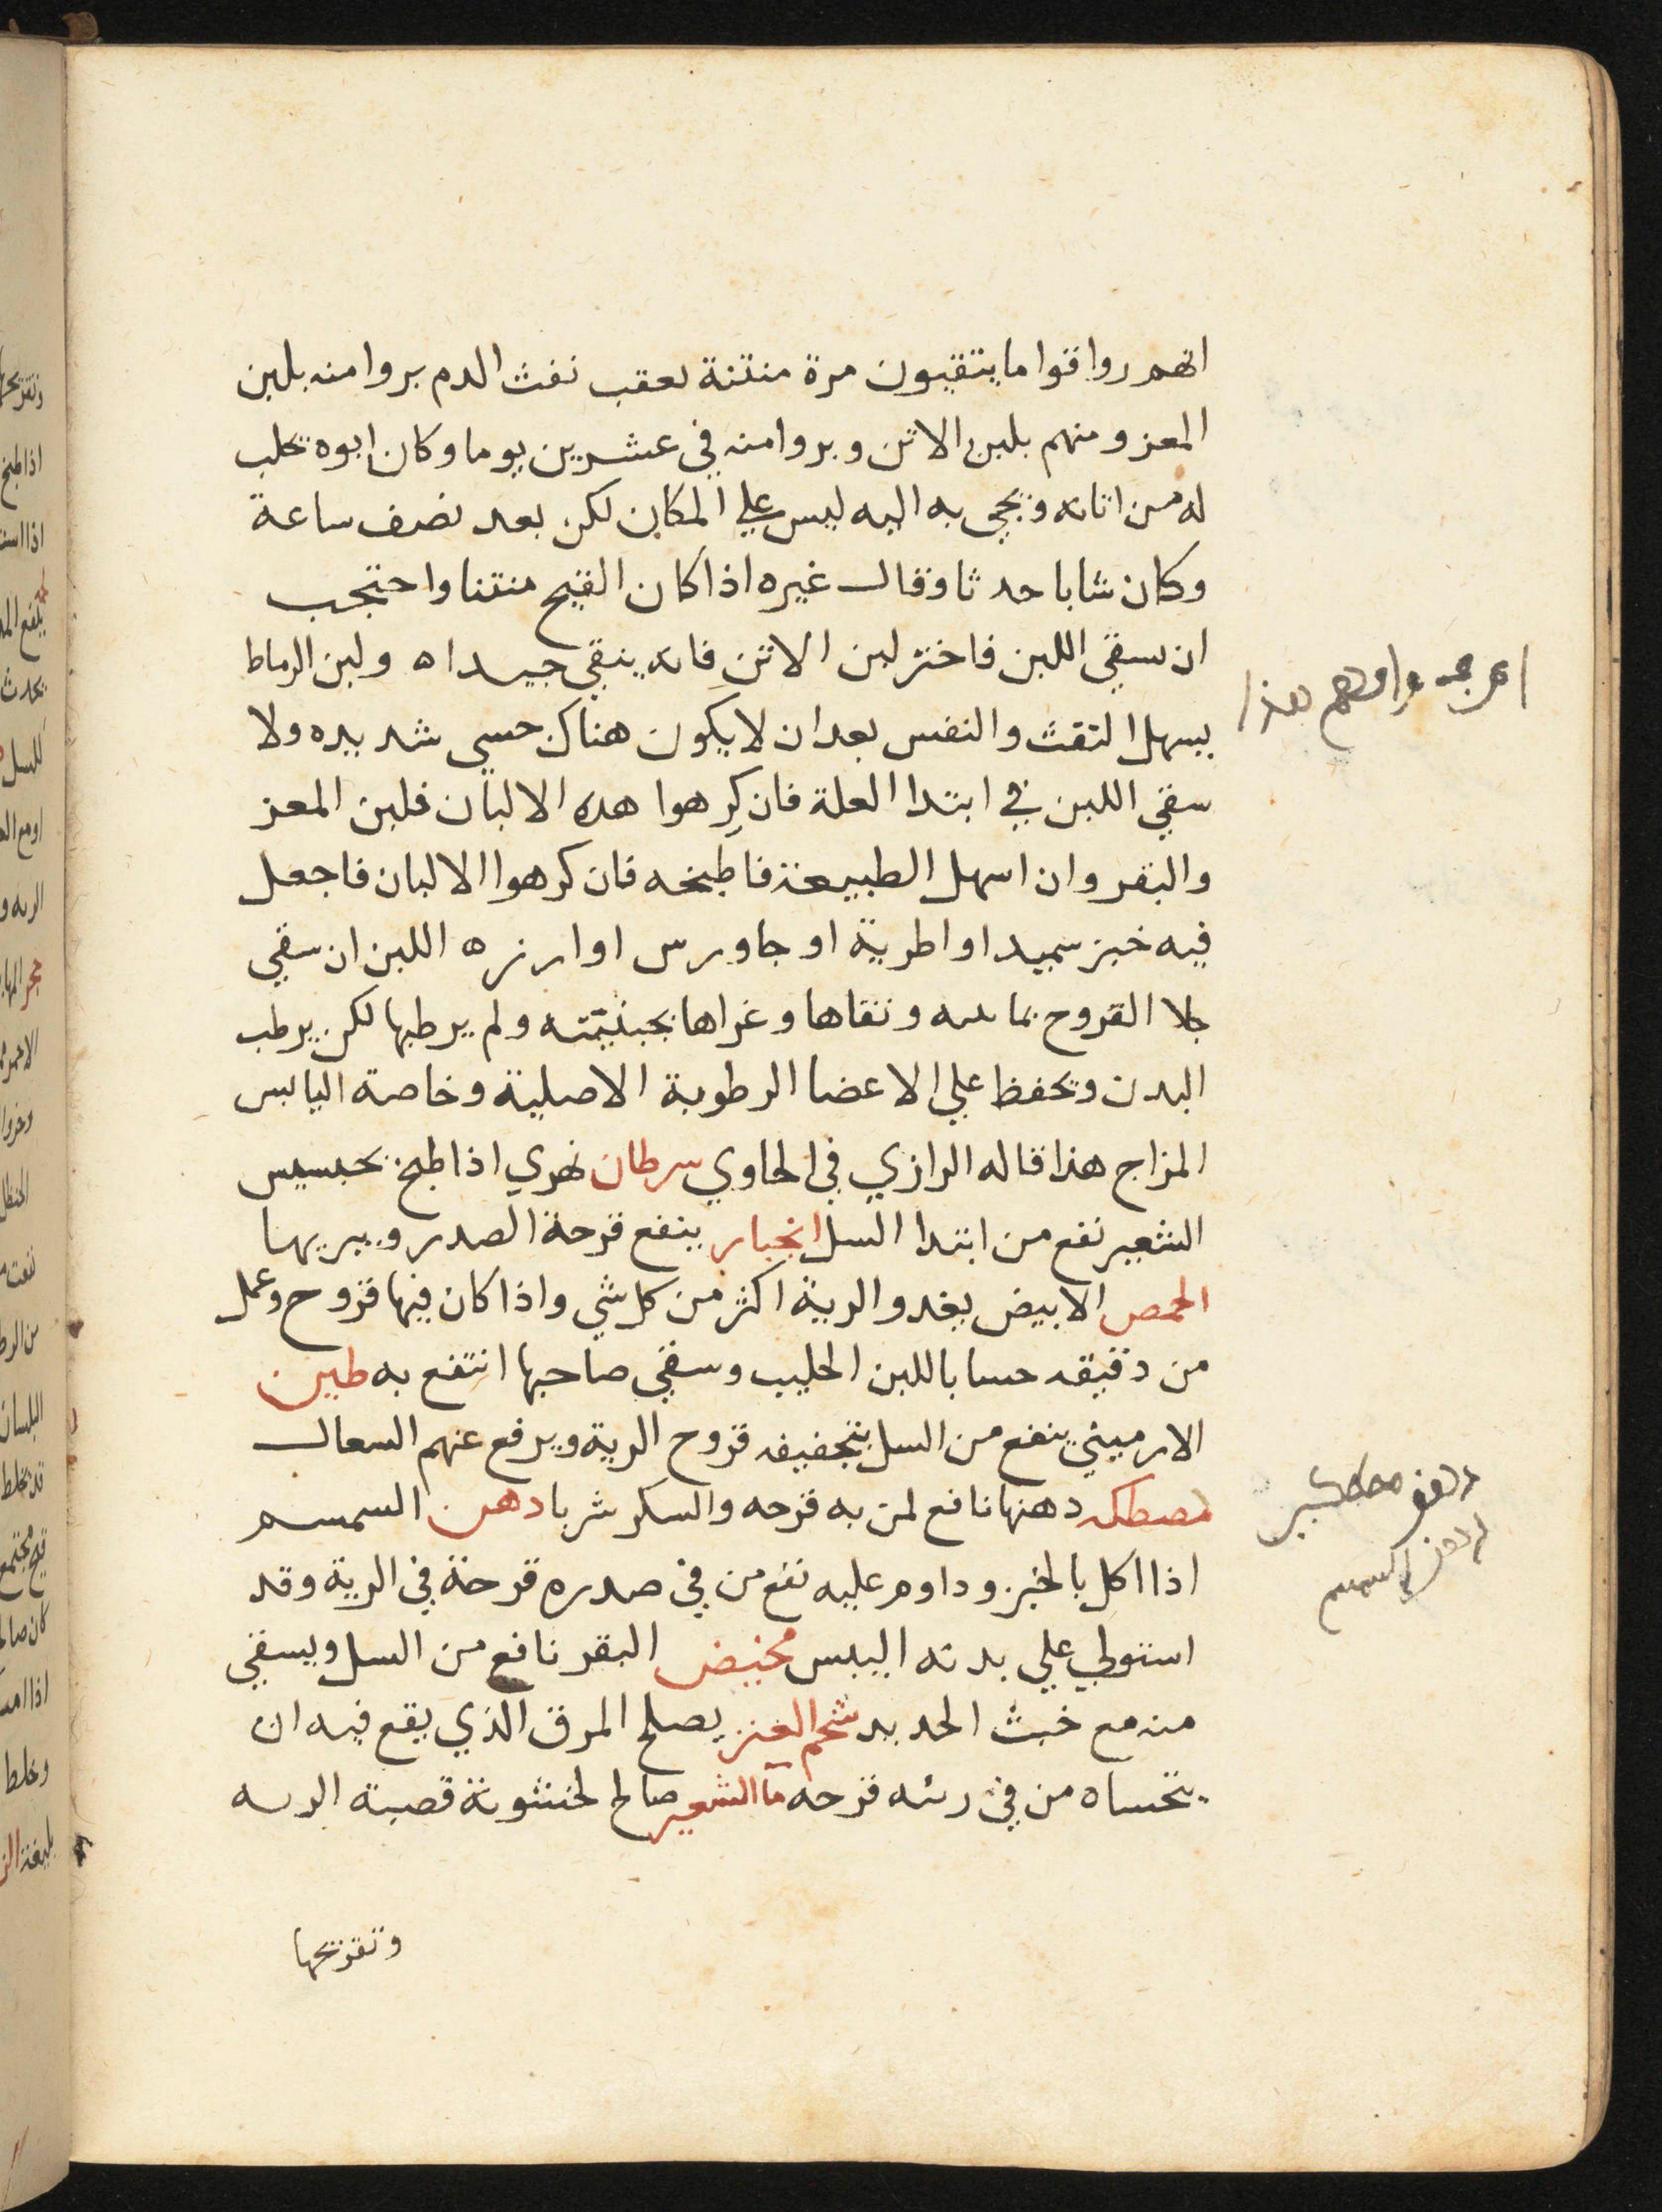 انهم رواقوا ما يتقيون مرة منتنة بعقب نفث الدم بروا منه بلبن
المعز ومنهم بلبن الاتن وبروا منه في عشرين يوما وكان ابوه يحلب
له من اتانه ويجي به اليه ليس علي المكان لكن بعد نصف ساعة
وكان شابا حدثا وقال غيره اذا كان القيح منتنا واحتجب
ان سقي اللبن فاختر لبن الاتن فانه ينقي جيدا ه ولبن الرماط
يسهل النفث والنفس بعد ان لا يكون هناك حمي شديده ولا
سقي اللبن في ابتدا العلة فان كرهوا هذه الالبان فلبن المعز
والبقر وان اسهل الطبيعة فاطبخه فان كرهوا الالبان فاجعل
فيه خبز سميد او اطرية او جاورس او ارز ه اللبن ان سقي
جلا القروح بمايته ونقاها وغراها بجبنيته ولم يرطبها لكن يرطب
البدن ويحفظ علي الاعضا الرطوبة الاصلية وخاصة اليابس
المزاج هذا قاله الرازي في الحاوي سرطان نهري اذا طبخ بحسيس
الشعير نفع من ابتدا السل انجبار ينفع قرحة الصدر ويبريها
الحمص الابيض يغدو الرية اكثر من كل شي واذا كان فيها قروح وعمل
من دقيقه حسا باللبن الحليب وسقي صاحبها انتفع به طين
الارميني ينفع من السل بتجفيفه قروح الرية ويرفع عنهم السعال
مصطكه دهنها نافع لمن به قرحه والسكر شربا دهن السمسم
اذا اكل بالخبز وداوم عليه نفع من في صدره قرحة في الرية وقد
استولي علي بدنه اليبس مخيض البقر نافع من السل ويسقي
منه مع خبث الحديد شحم العنز يصلح المرق الذي يقع فيه ان
يتحساه من في رئه قرحه ما الشعير صالح لخشونة قصبة الريه
وتقرحها